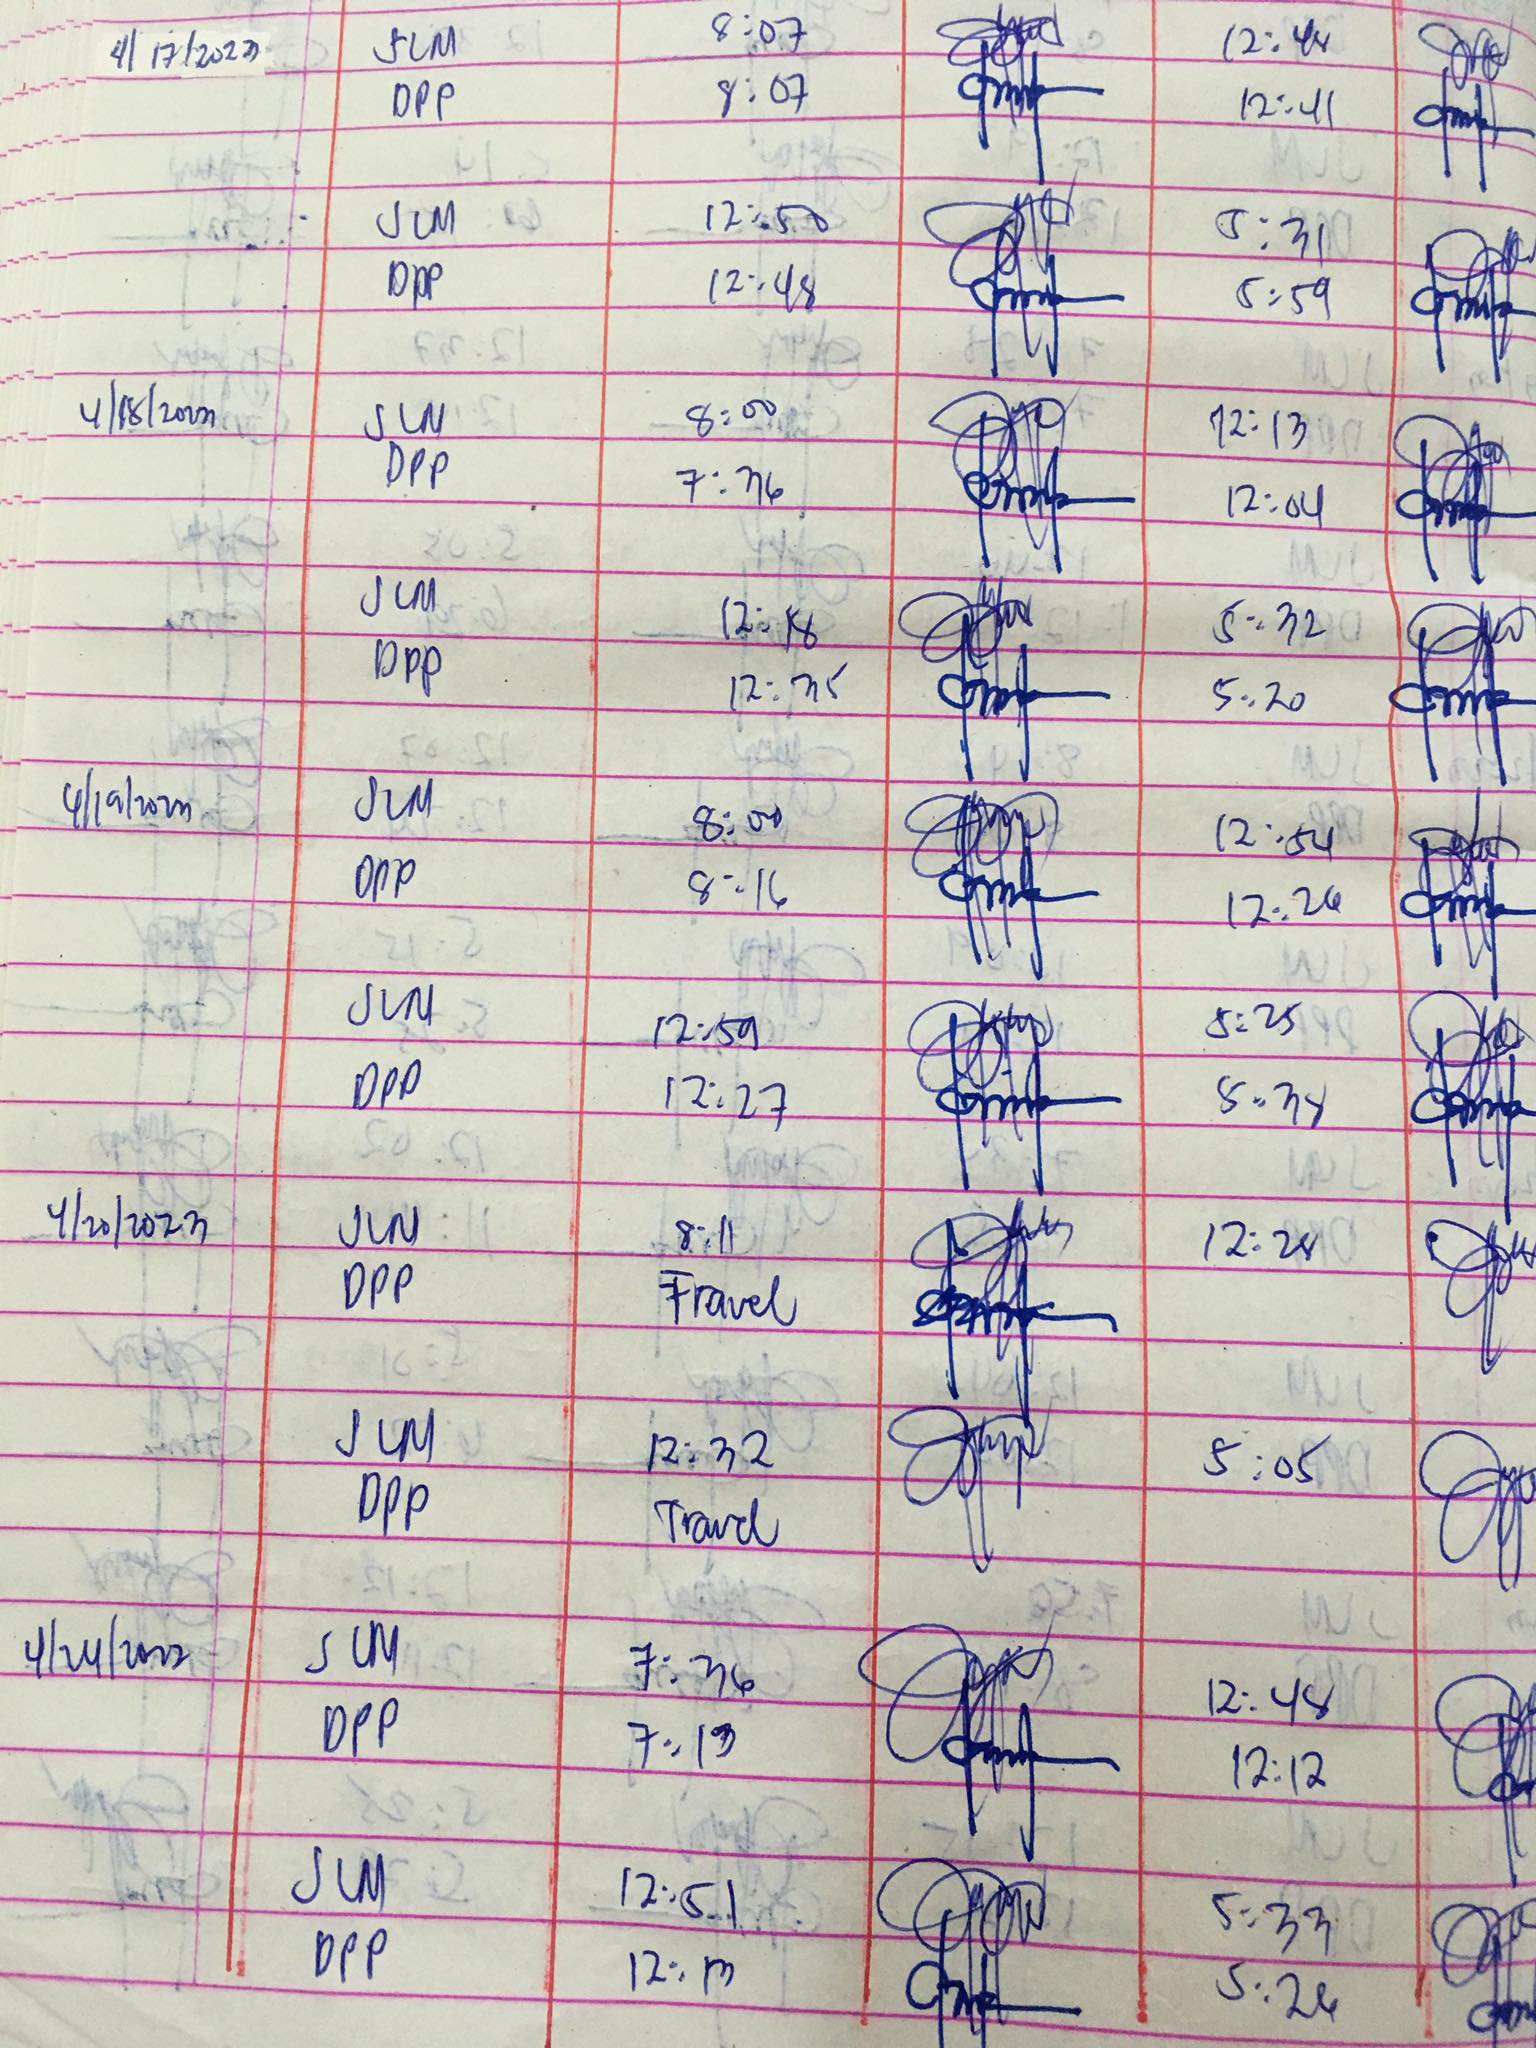 4/17/2023 JLM 8:07 12:44
DPP 8:07 12:41
JLM 12:50 5:31
DPP 12:48 5:59
4/18/2023 JLM 8:00 12:13
DPP 7:36 12:04
JLM 12:18 5:32
DPP 12:35 5:20
4/19/2023 JLM 8:00 12:54
DPP 8:16 12:26
JLM 12:59 5:25
DPP 12:27 5:38
4/20/2023 JLM 8:11 12:28
DPP Travel
JLM 12:32 5:05
DPP Travel
4/24/2023 JLM 7:36 12:48
DPP 7:13 12:12
JLM 12:51 5:33
DPP 12:13 5:26